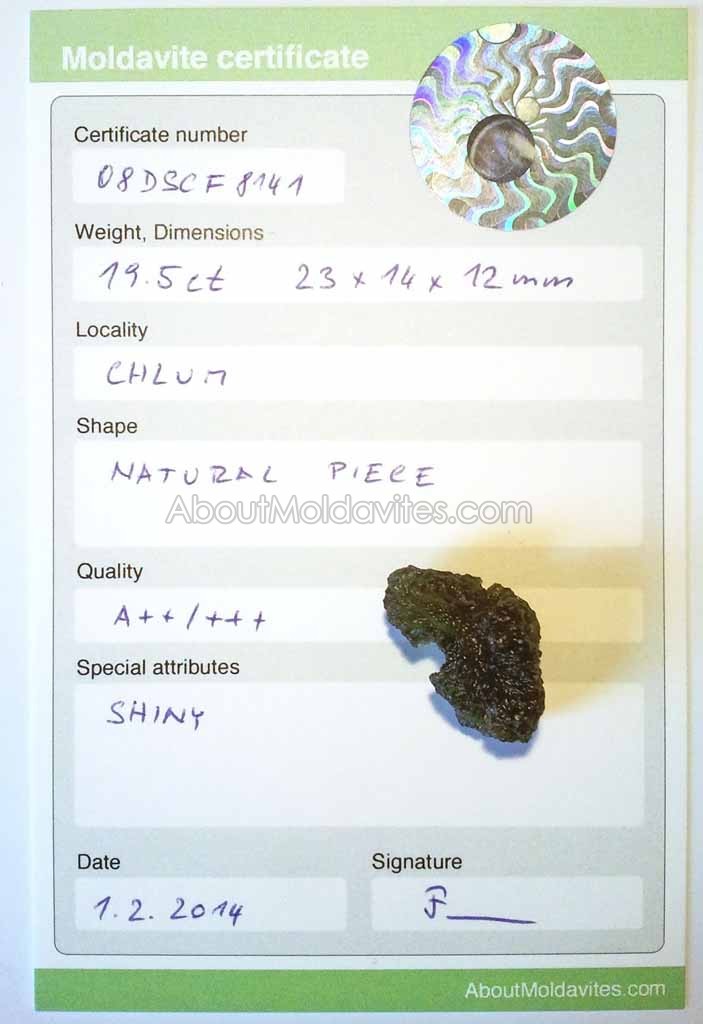 Moldavite certificate
Certificate number
08DSCF8141
Weight, Dimensions
19.5ct 23 x 14 x 12 mm
Locality
CHLUM
Shape
NATURAL PIECE
AboutMoldavites.com
Quality
A++/+++
Special attributes
SHINY
Date
Signature
1.2. 2014
F
AboutMoldavites.com